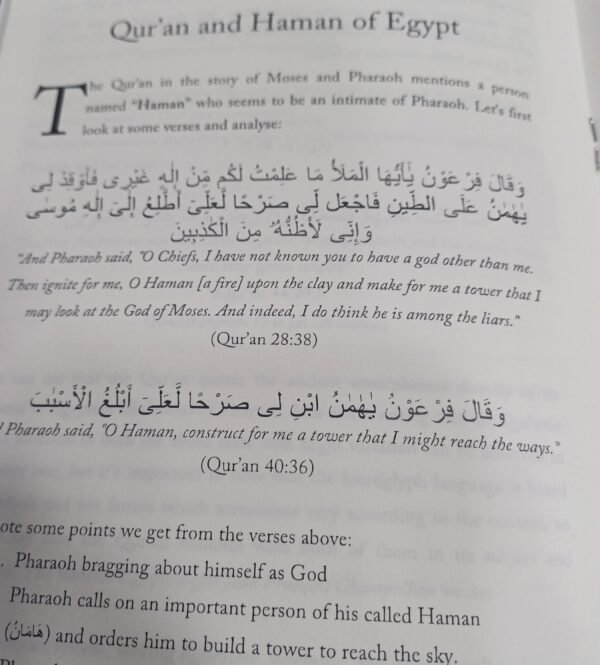 Qur'an and Haman of Egypt
The Qur'an in the story of Moses and Pharaoh mentions a person
named "Haman" who seems to be an intimate of Pharaoh. Let's first
look at some verses and analyse:
وَقَالَ فِرْعَوْنُ يَٰٓأَيُّهَا الْمَلَأُ مَا عَلِمْتُ لَكُم مِّنْ إِلَٰهٍ غَيْرِى فَأَوْقِدْ لِى
يَٰهَٰمَٰنُ عَلَى الطِّينِ فَاجْعَل لِّى صَرْحًا لَّعَلِّىٓ أَطَّلِعُ إِلَىٰٓ إِلَٰهِ مُوسَىٰ
وَإِنِّى لَأَظُنُّهُۥ مِنَ الْكَٰذِبِينَ
"And Pharaoh said, "O Chiefs, I have not known you to have a god other than me.
Then ignite for me, O Haman [a fire] upon the clay and make for me a tower that I
may look at the God of Moses. And indeed, I do think he is among the liars."
(Qur'an 28:38)
وَقَالَ فِرْعَوْنُ يَٰهَٰمَٰنُ ابْنِ لِى صَرْحًا لَّعَلِّىٓ أَبْلُغُ الْأَسْبَٰبَ
Pharaoh said, "O Haman, construct for me a tower that I might reach the ways."
(Qur'an 40:36)
ote some points we get from the verses above:
. Pharaoh bragging about himself as God
Pharaoh calls on an important person of his called Haman
(هَامَانُ) and orders him to build a tower to reach the sky.